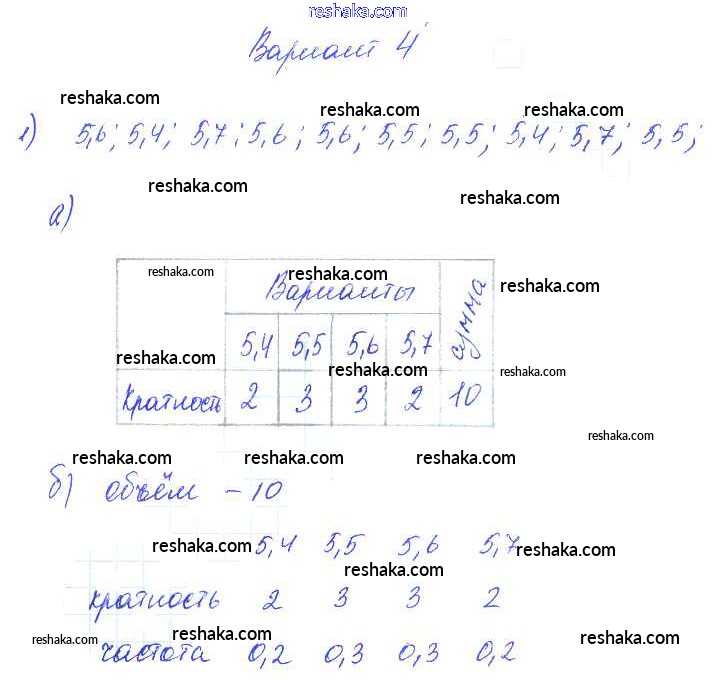 reshaka.com
Вариант 4
reshaka.com reshaka.com reshaka.com
1) 5,6; 5,4; 5,7; 5,6; 5,6; 5,5; 5,5; 5,4; 5,7; 5,5;
reshaka.com reshaka.com
а)
reshaka.com Варианты reshaka.com сумма reshaka.com
reshaka.com 5,4 5,5 5,6 5,7
reshaka.com reshaka.com
Кратность 2 3 3 2 10
reshaka.com
reshaka.com reshaka.com reshaka.com
б) объём – 10
reshaka.com 5,4 5,5 5,6 5,7 reshaka.com
reshaka.com
кратность 2 3 3 2
reshaka.com reshaka.com reshaka.com
частота 0,2 0,3 0,3 0,2